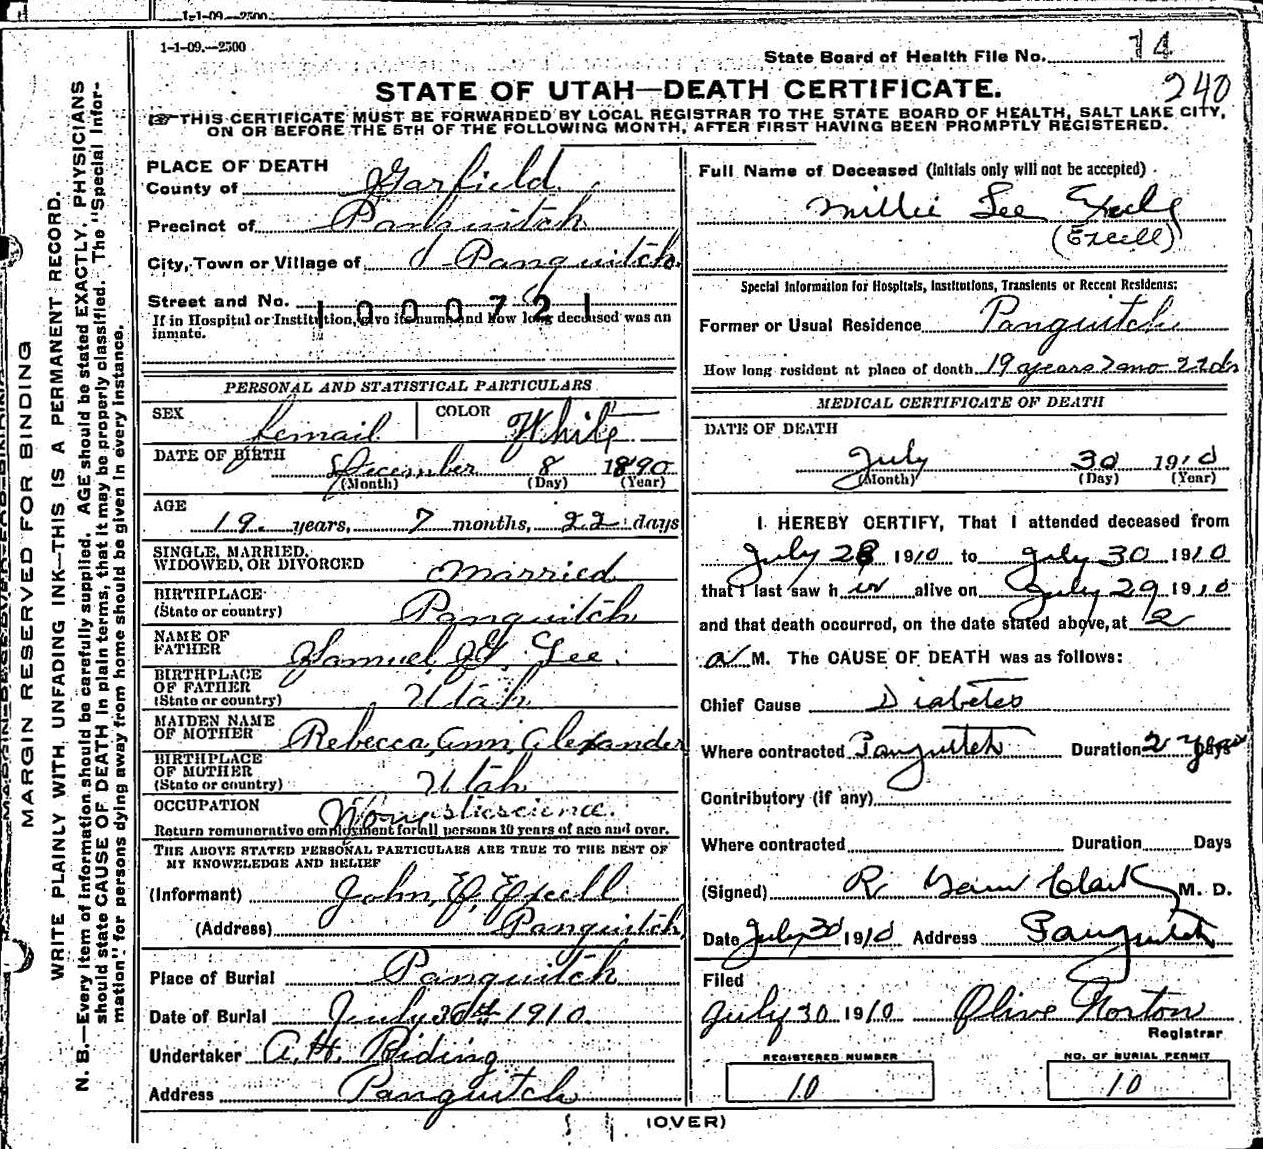 1-1-09.—2500
1-1-09.—2500
State Board of Health File No. 14
240
STATE OF UTAH—DEATH CERTIFICATE.
☞THIS CERTIFICATE MUST BE FORWARDED BY LOCAL REGISTRAR TO THE STATE BOARD OF HEALTH, SALT LAKE CITY,
ON OR BEFORE THE 5TH OF THE FOLLOWING MONTH, AFTER FIRST HAVING BEEN PROMPTLY REGISTERED.
MARGIN RESERVED FOR BINDING
WRITE PLAINLY WITH UNFADING INK—THIS IS A PERMANENT RECORD.
N. B.—Every item of information should be carefully supplied. AGE should be stated EXACTLY. PHYSICIANS
should state CAUSE OF DEATH in plain terms, that it may be properly classified. The "Special Infor-
mation" for persons dying away from home should be given in every instance.
PLACE OF DEATH
County of Garfield
Precinct of Panguitch
City, Town or Village of Panguitch
Street and No.
1000721
If in Hospital or Institution, give its name and how long deceased was an
inmate.
PERSONAL AND STATISTICAL PARTICULARS
SEX Femail COLOR White
DATE OF BIRTH
December 8 1890
(Month) (Day) (Year)
AGE
19 years, 7 months, 22 days
SINGLE, MARRIED,
WIDOWED, OR DIVORCED Married
BIRTHPLACE
(State or country) Panguitch
NAME OF
FATHER Samuel Lee
BIRTHPLACE
OF FATHER
(State or country) Utah
MAIDEN NAME
OF MOTHER Rebecca Ann Alexander
BIRTHPLACE
OF MOTHER
(State or country) Utah
OCCUPATION
Return remunerative employment for all persons 10 years of age and over.
THE ABOVE STATED PERSONAL PARTICULARS ARE TRUE TO THE BEST OF
MY KNOWLEDGE AND BELIEF
(Informant) John E. Excell
(Address) Panguitch
Place of Burial Panguitch
Date of Burial July 30th 1910
Undertaker A. H. Riding
Address Panguitch
Full Name of Deceased (initials only will not be accepted)
Millie Lee
(Excell)
Special Information for Hospitals, Institutions, Transients or Recent Residents:
Former or Usual Residence Panguitch
How long resident at place of death 19 years 7 mo 22 ds
MEDICAL CERTIFICATE OF DEATH
DATE OF DEATH
July 30 1910
(Month) (Day) (Year)
I HEREBY CERTIFY, That I attended deceased from
July 28 1910 to July 30 1910
that I last saw h er alive on July 29 1910
and that death occurred, on the date stated above, at 2
a M. The CAUSE OF DEATH was as follows:
Chief Cause Diabetes
Where contracted Panguitch Duration 2 years Days
Contributory (if any)
Where contracted Duration Days
(Signed) R. Clark M. D.
Date July 30 1910 Address Panguitch
Filed
July 30 1910 Olive Norton
Registrar
REGISTERED NUMBER
10
NO. OF BURIAL PERMIT
10
(OVER)